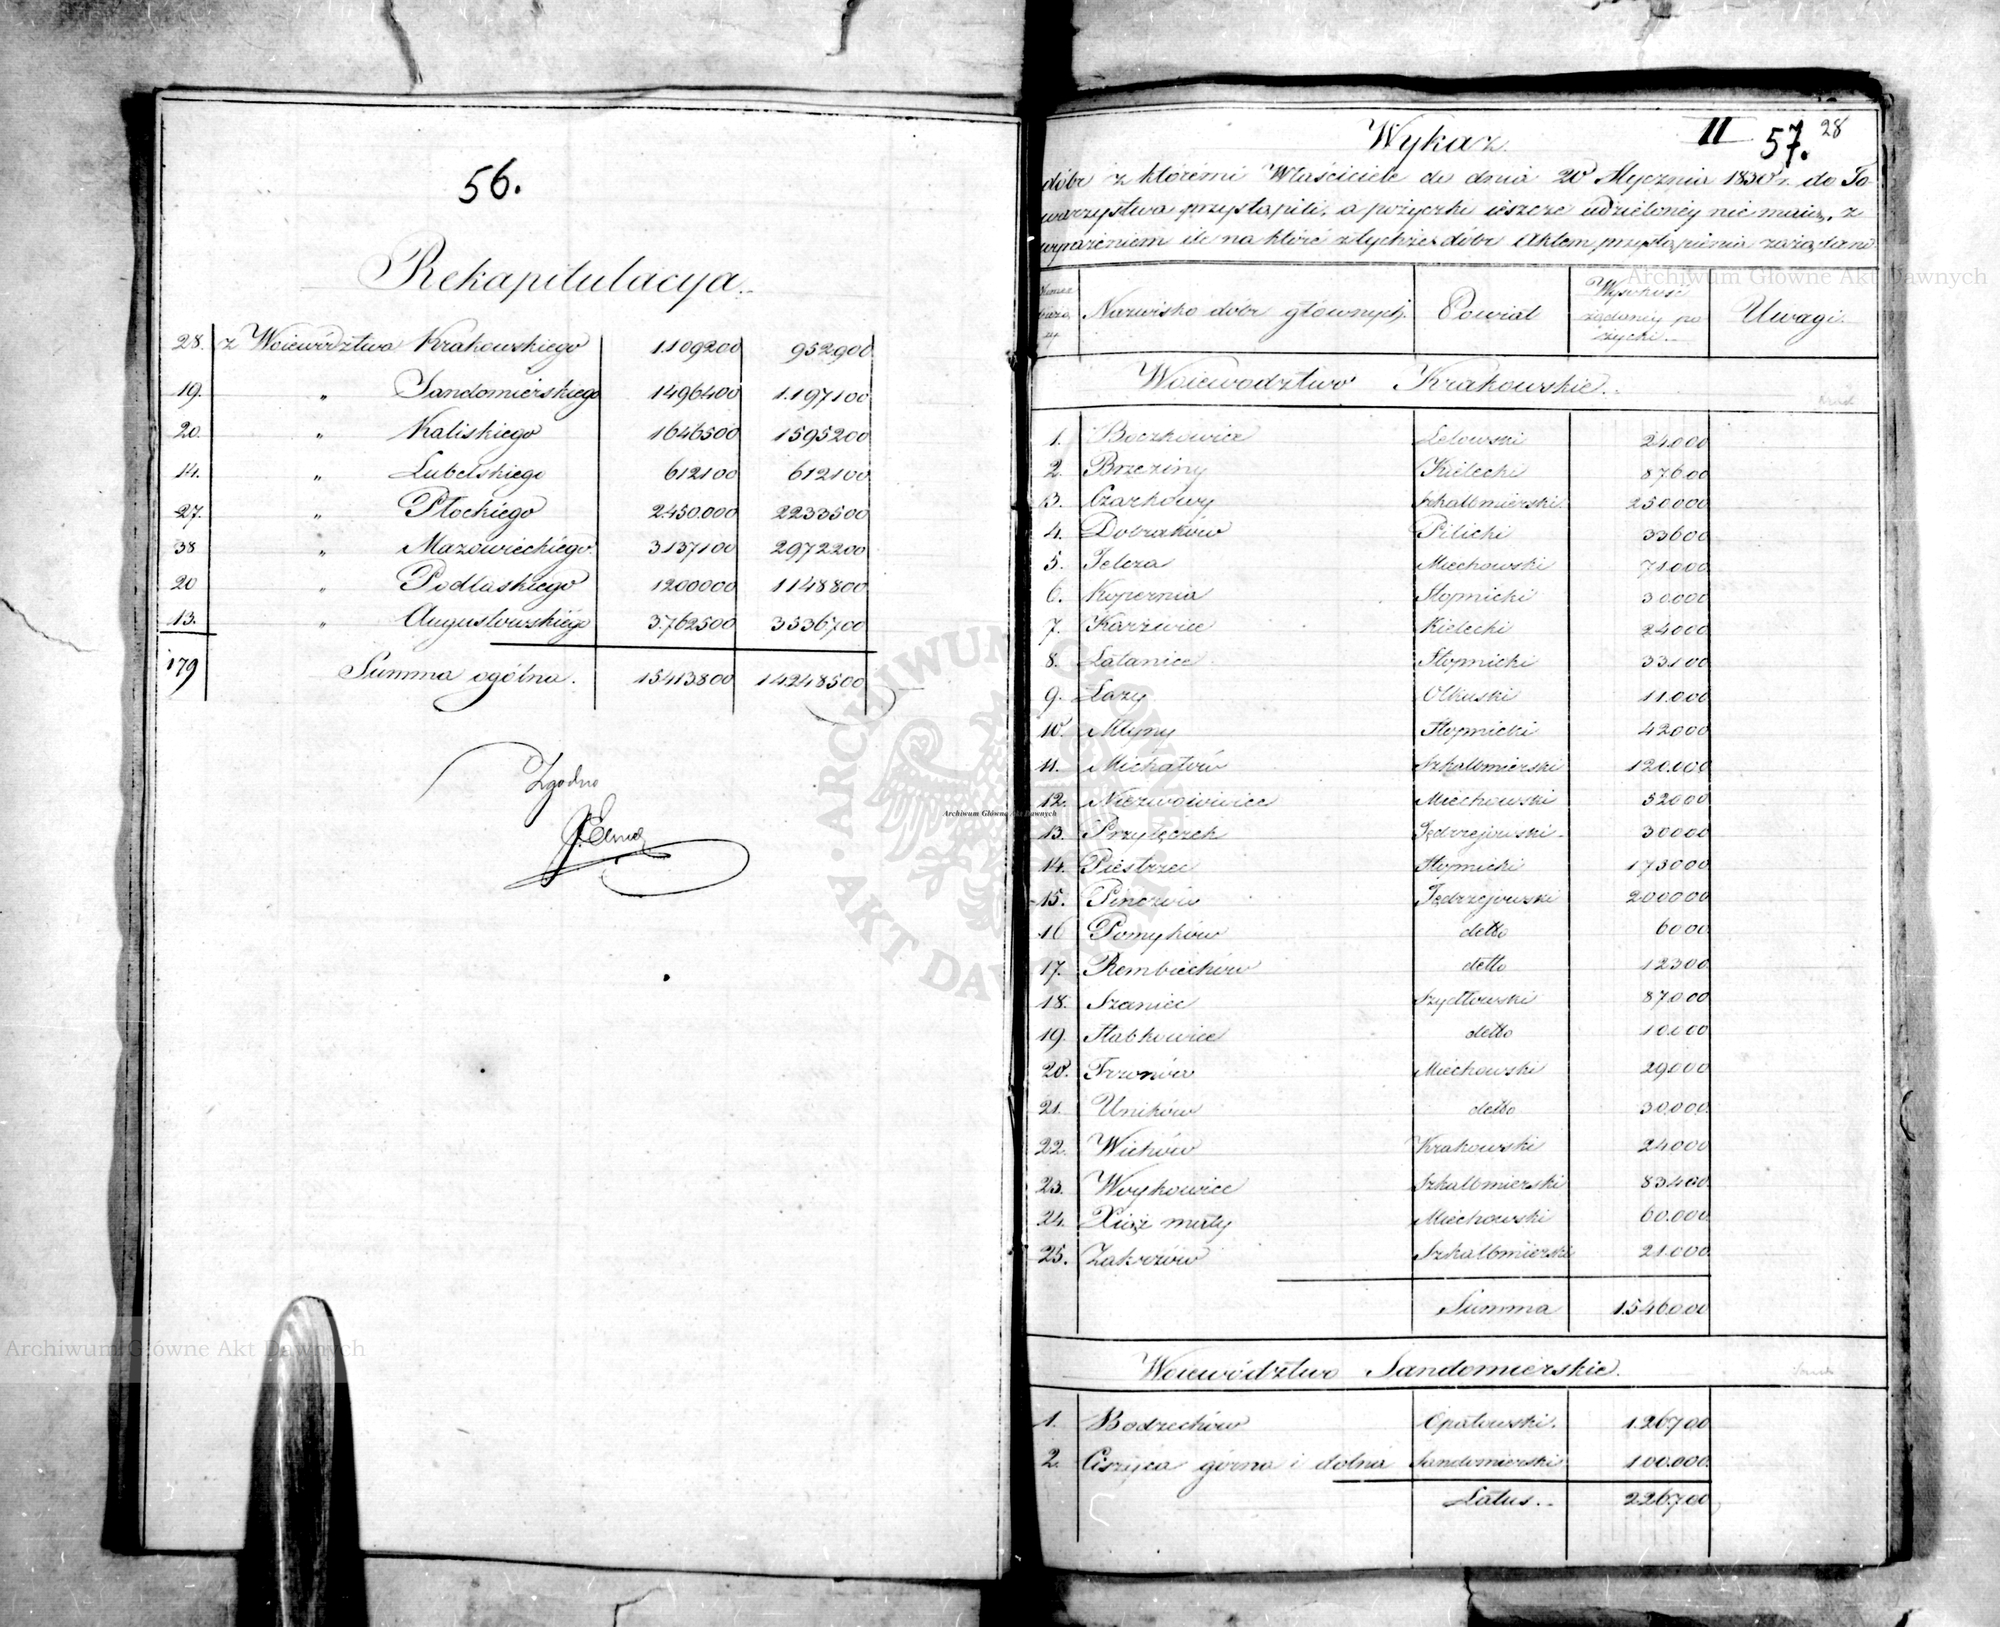 56.
Rekapitulacya.
28. z Woiewództwa Krakowskiego 1.109200 952900
19. " Sandomierskiego 1496400 1.197100
20. " Kaliskiego 1646500 1595200
14. " Lubelskiego 612100 612100
27. " Płockiego 2.450.000 2233500
38 " Mazowieckiego 3137100 2972200
20 " Podlaskiego 1200000 1148800
13. " Augustowskiego 3.762500 3536700
179 Summa ogólna. 15413800 14248500
Zgodno
II 57. 28
Wykaz
dóbr z któremi Właściciele do dnia 20 Stycznia 1830 r. do To-
warzystwa przystąpili, a pożyczki ieszcze udzieloney nie maią, z
wyrażeniem ile na któré z tychże dóbr Aktem przystąpienia zażądano
Numer Nazwisko dóbr głównych. Powiat Wysokość żądaney po życzki. Uwagi.
Woiewodztwo Krakowskie.
1. Boczkowice Lelowski 24.000
2. Brzeziny Kielecki 87600
3. Czarkowy Szkalbmierski 250000
4. Dobraków Pilicki 33600
5. Jelcza Miechowski 71.000
6. Kopernia Stopnicki 30.000
7. Karzwice Kielecki 24000
8. Łatanice Stopnicki 33100
9. Łazy Olkuski 11.000
10. Młyny Stopnicki 42000
11. Michałów Szkalbmierski 120.000
12. Niezwoiowice Miechowski 52000
13. Przyłęczek Jędrzejowski 30000
14. Piestrzec Stopnicki 173000
15. Pinczów Jędrzejowski 200000
16 Pomyków detto 6000
17. Rembiechów detto 12300
18. Szaniec Szydłowski 87.000
19. Słabkowice detto 10.000
20. Trzonów Miechowski 29000
21. Uników detto 30.000
22. Wicków Krakowski 24000
23. Woykowice Szkalbmierski 83400
24. Xiąż mały Miechowski 60.000
25. Zakrzów Szkalbmierski 21.000
Summa 1.546000
Woiewództwo Sandomierskie.
1. Bodzechów Opatowski. 126700
2. Ciszyca górna i dolna Sandomierski 100.000
Latus.. 226700
Archiwum Główne Akt Dawnych
Archiwum Główne Akt Dawnych
Archiwum Główne Akt Dawnych
ARCHIWUM GŁÓWNE AKT DAWNYCH